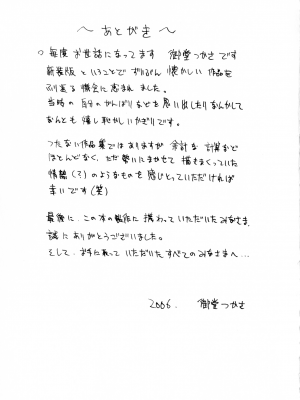 ～あとがき～
。毎度お世話になってます 御堂つかさです
新装版ということでずいぶん懐かしい作品を
ふり返る機会に恵まれました。
当時の自分のがんばりなどを思い出したりなんかして
なんとも嬉し恥かしいかぎりです。
つたない作品集ではありますが 余計な計算など
ほとんどなく、ただ勢いにまかせて描きまくっていた
情熱(?)のようなものを感じとっていただければ
幸いです(笑)
最後に、この本の製作に携わっていただいたみなさま、
誠にありがとうございました。
そして、お手に取っていただいたすべてのみなさまへ…
2006. 御堂つかさ